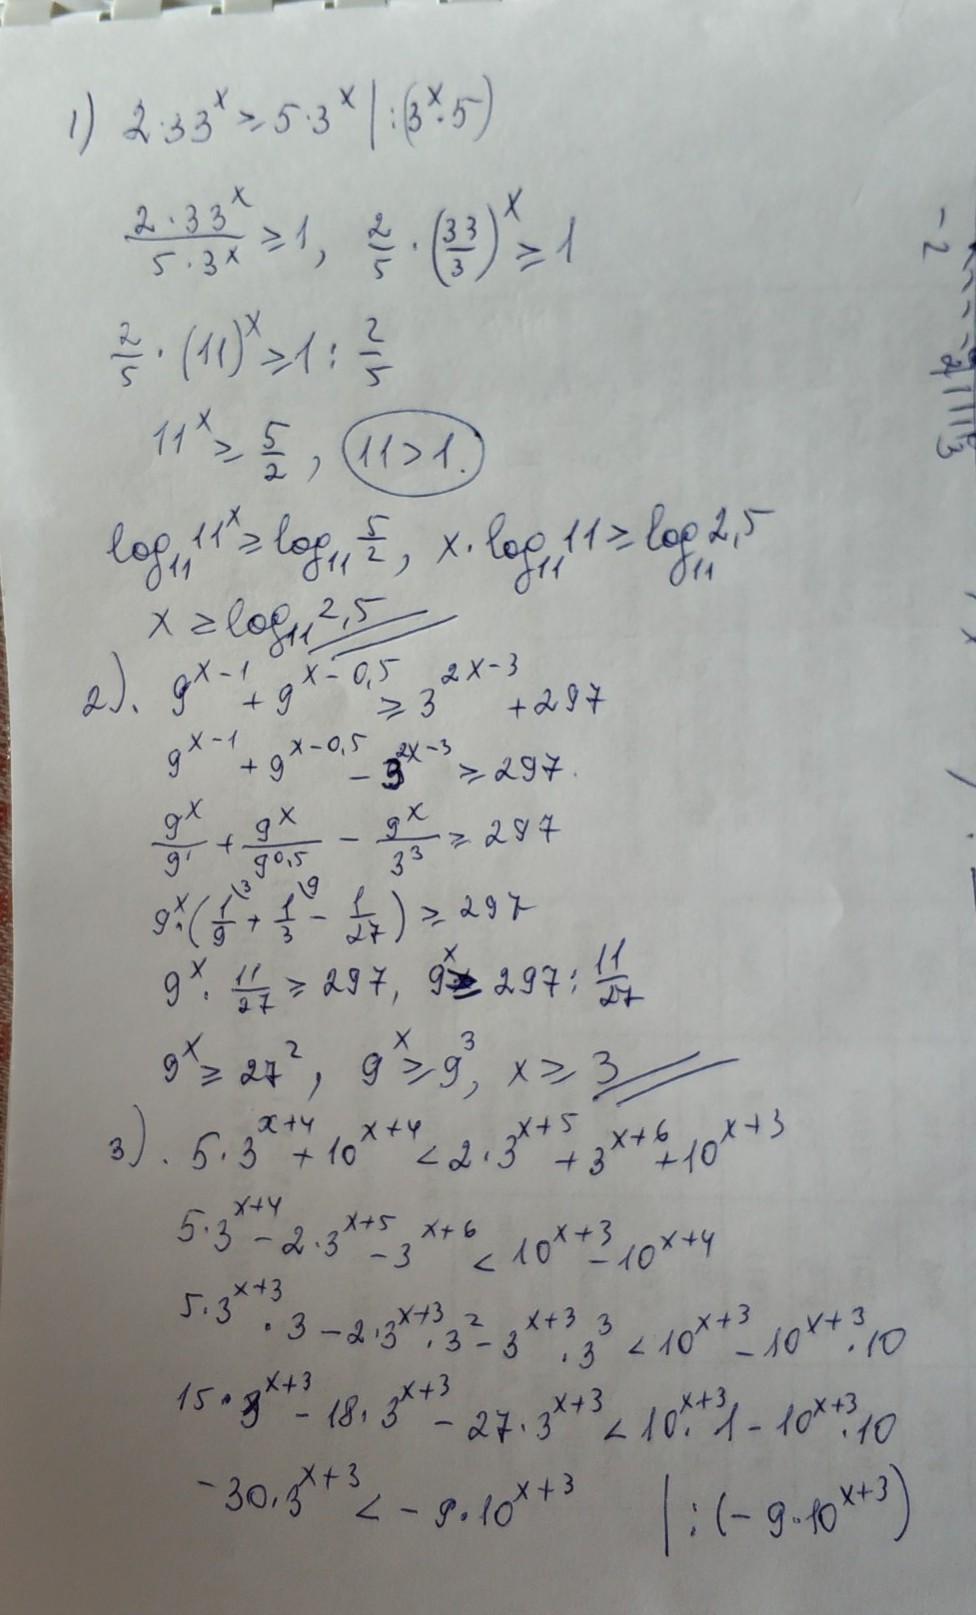 1) 2·33^x ≥ 5·3^x | :(3^x·5)
(2·33^x)/(5·3^x) ≥ 1, 2/5 · (33/3)^x ≥ 1
2/5 · (11)^x ≥ 1 : 2/5
11^x ≥ 5/2, 11 > 1.
log₁₁ 11^x ≥ log₁₁ 5/2, x · log₁₁ 11 ≥ log₁₁ 2,5
x ≥ log₁₁ 2,5
2). 9^(x-1) + 9^(x-0,5) ≥ 3^(2x-3) + 297
9^(x-1) + 9^(x-0,5) - 3^(2x-3) ≥ 297.
9^x/9^1 + 9^x/9^0,5 - 9^x/3^3 ≥ 297
9^x · (1/9 \3 + 1/3 \9 - 1/27) ≥ 297
9^x · 11/27 ≥ 297, 9^x ≥ 297 : 11/27
9^x ≥ 27^2, 9^x ≥ 9^3, x ≥ 3
3). 5·3^(x+4) + 10^(x+4) < 2·3^(x+5) + 3^(x+6) + 10^(x+3)
5·3^(x+4) - 2·3^(x+5) - 3^(x+6) < 10^(x+3) - 10^(x+4)
5·3^(x+3) · 3 - 2·3^(x+3) · 3^2 - 3^(x+3) · 3^3 < 10^(x+3) - 10^(x+3) · 10
15·3^(x+3) - 18·3^(x+3) - 27·3^(x+3) < 10^(x+3) · 1 - 10^(x+3) · 10
-30·3^(x+3) < -9·10^(x+3) | :(-9·10^(x+3))